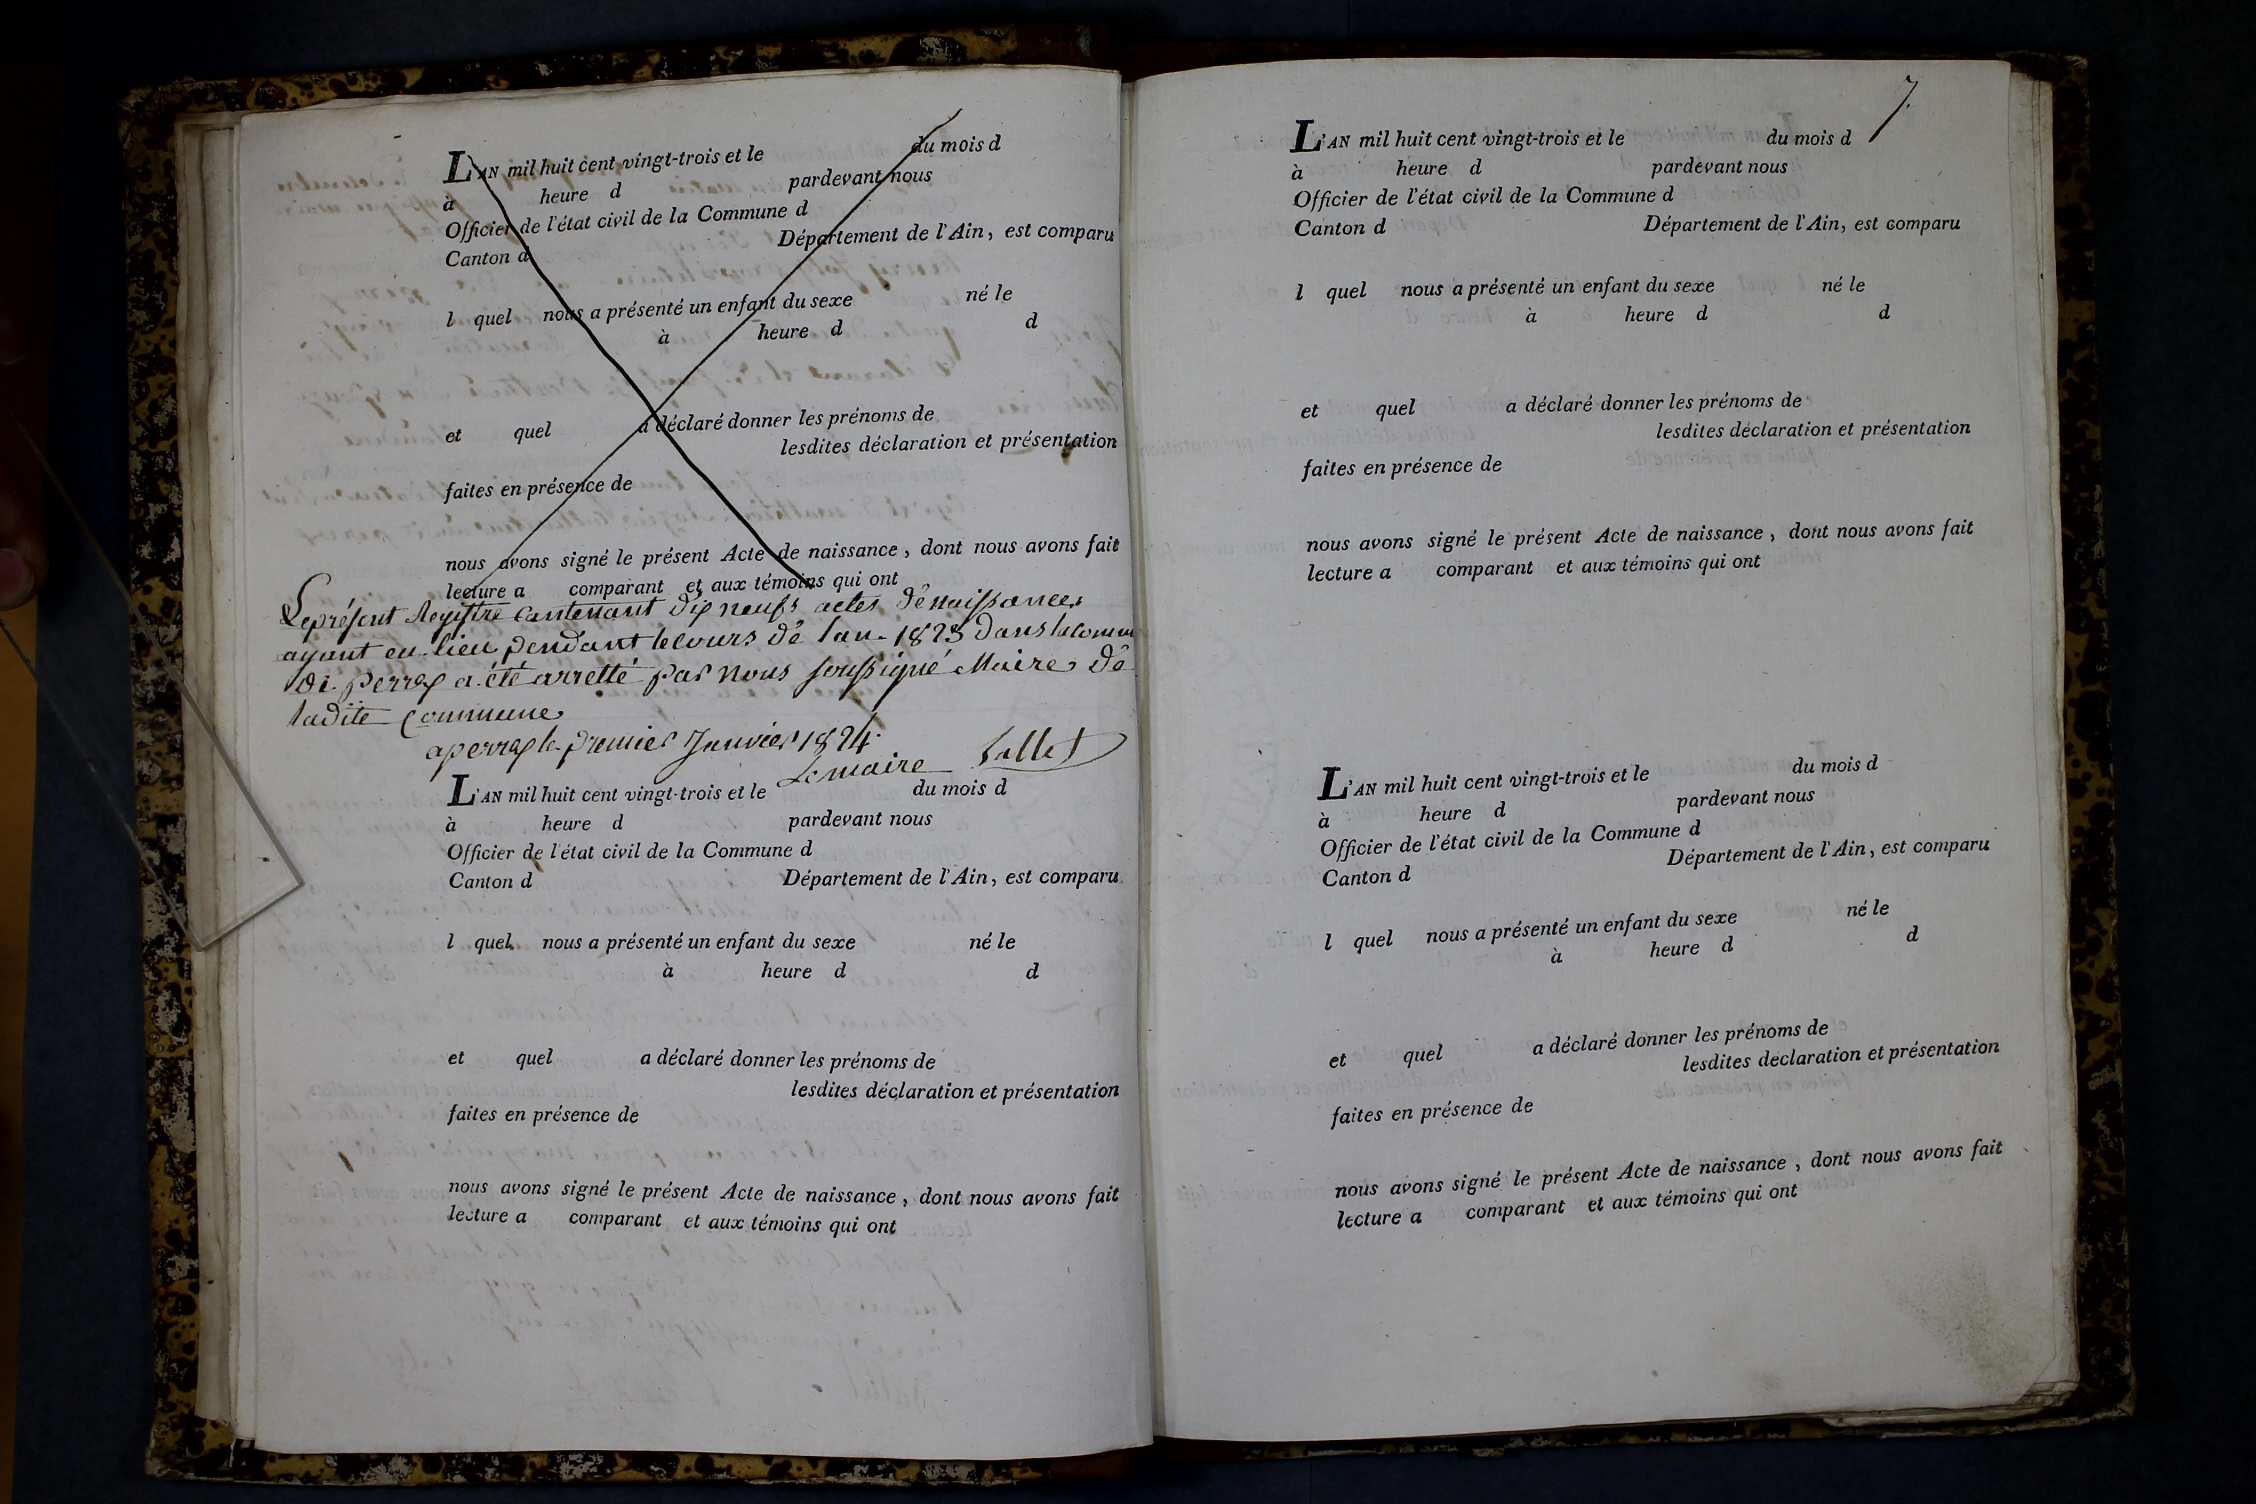 L'AN mil huit cent vingt-trois et le du mois d
à heure d pardevant nous
Officier de l'état civil de la Commune d
Canton d Département de l'Ain, est comparu
l quel nous a présenté un enfant du sexe né le
à heure d d
et quel a déclaré donner les prénoms de
lesdites déclaration et présentation
faites en présence de
nous avons signé le présent Acte de naissance, dont nous avons fait
lecture a comparant et aux témoins qui ont
Le présent Registre contenant dix neufs actes dé naissances
ayant eu lieu pendant le cours dé l'an 1823 dans la comm
de perrex a été arretté par nous soussigné Maire dé
ladite Commune
a perrex le premier Janvier 1824
Le maire
L'AN mil huit cent vingt-trois et le du mois d
à heure d pardevant nous
Officier de l'état civil de la Commune d
Canton d Département de l'Ain, est comparu
l quel nous a présenté un enfant du sexe né le
à heure d d
et quel a déclaré donner les prénoms de
lesdites déclaration et présentation
faites en présence de
nous avons signé le présent Acte de naissance, dont nous avons fait
lecture a comparant et aux témoins qui ont
7.
L'AN mil huit cent vingt-trois et le du mois d
à heure d pardevant nous
Officier de l'état civil de la Commune d
Canton d Département de l'Ain, est comparu
l quel nous a présenté un enfant du sexe né le
à heure d d
et quel a déclaré donner les prénoms de
lesdites déclaration et présentation
faites en présence de
nous avons signé le présent Acte de naissance, dont nous avons fait
lecture a comparant et aux témoins qui ont
L'AN mil huit cent vingt-trois et le du mois d
à heure d pardevant nous
Officier de l'état civil de la Commune d
Canton d Département de l'Ain, est comparu
l quel nous a présenté un enfant du sexe né le
à heure d d
et quel a déclaré donner les prénoms de
lesdites declaration et présentation
faites en présence de
nous avons signé le présent Acte de naissance, dont nous avons fait
lecture a comparant et aux témoins qui ont